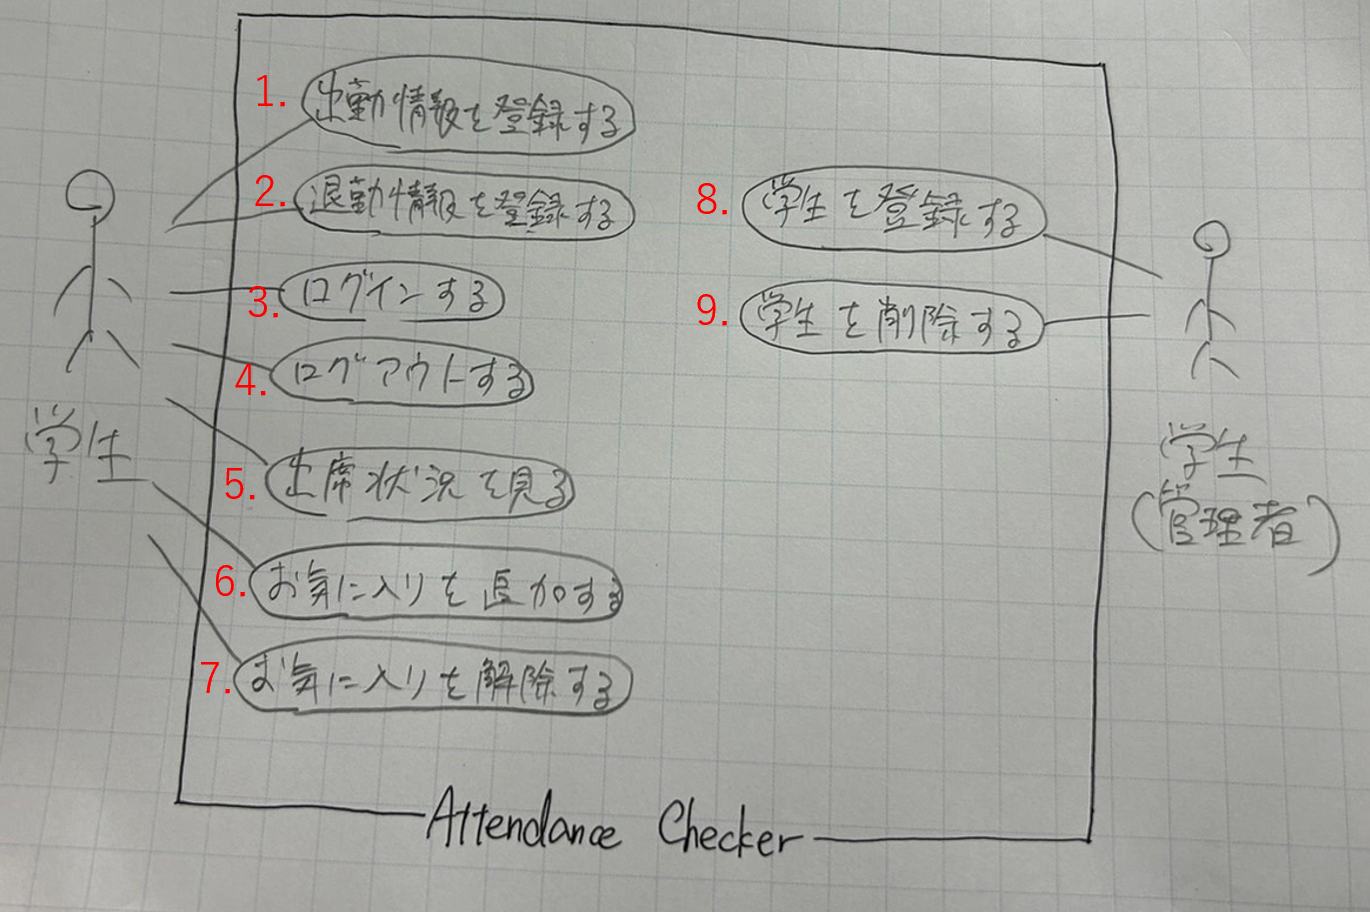 1. 出勤情報を登録する
2. 退勤情報を登録する
3. ログインする
4. ログアウトする
5. 出席状況を見る
6. お気に入りを追加する
7. お気に入りを解除する
8. 学生を登録する
9. 学生を削除する
学生
学生
(管理者)
Attendance Checker